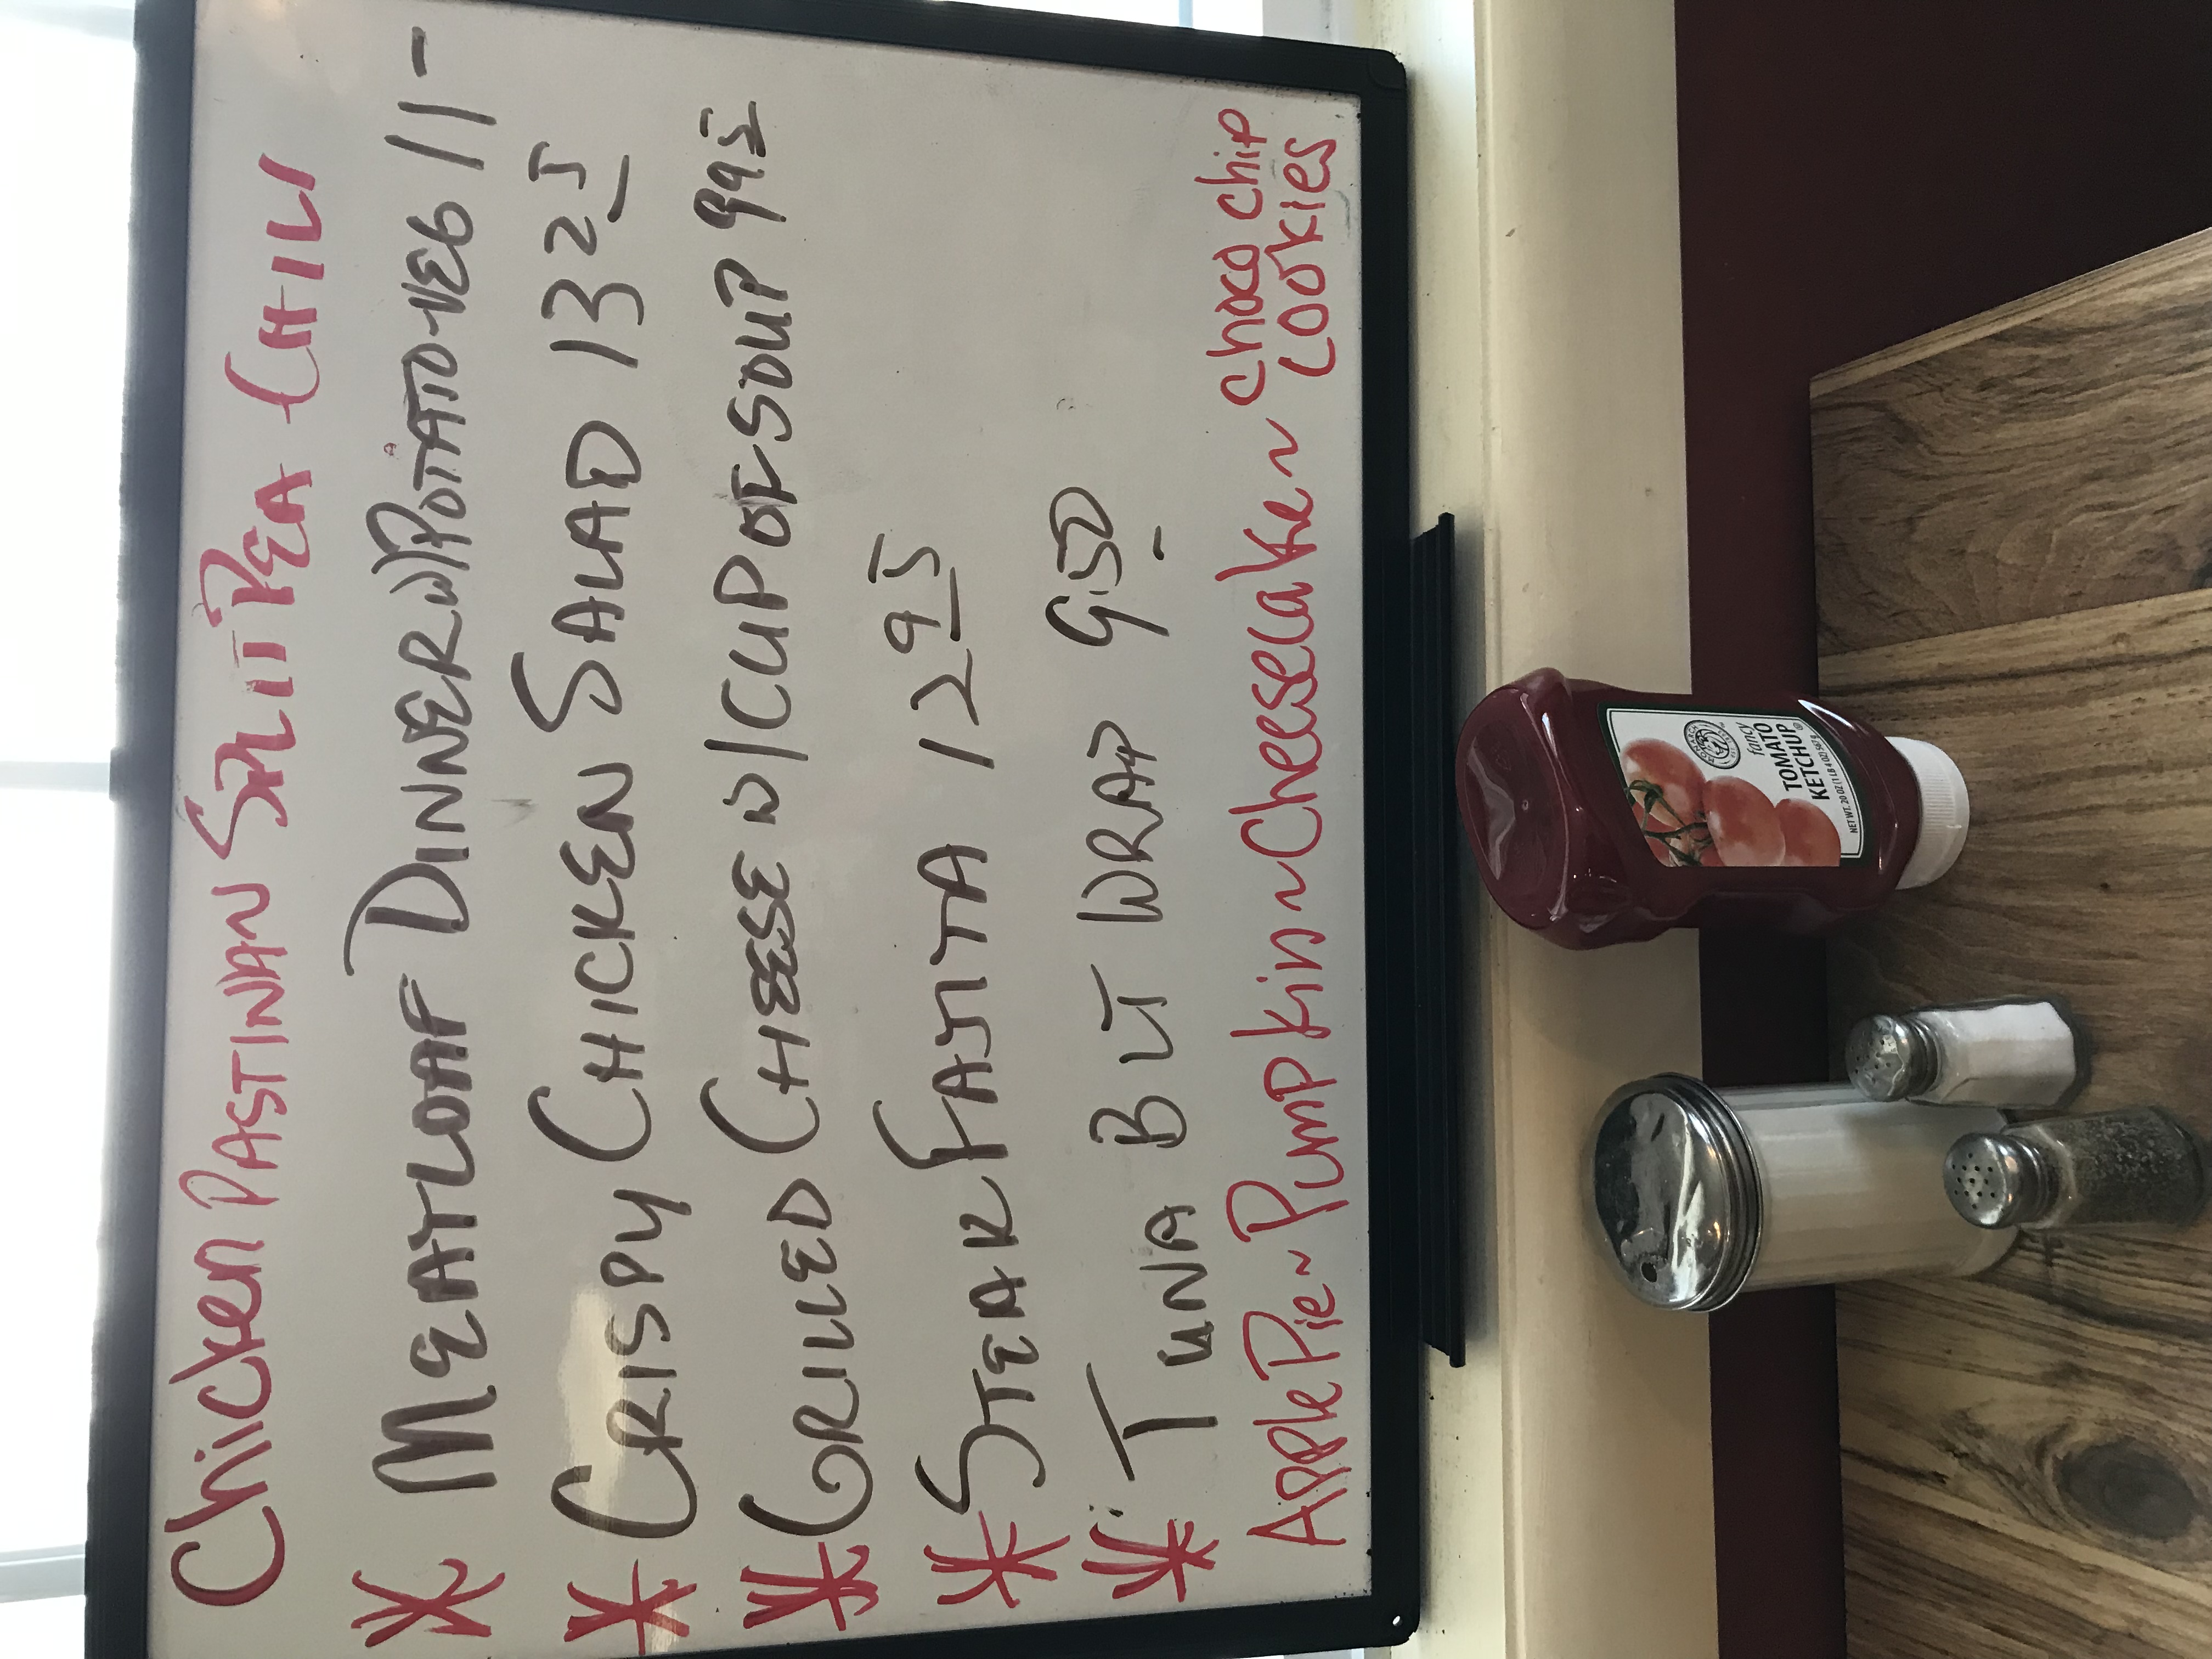 Chicken PASTINAN SPLIT PEA CHILI
* MEATLOAF DINNER W/POTATO+VEG 11-
* CRISPY CHICKEN SALAD 13 25
* GRILLED CHEESE W/CUP OF SOUP 9 95
* STEAK FAJITA 12 95
* TUNA BLT WRAP 9.50
Apple Pie ~ Pumpkin ~ Cheesecake ~ Choco chip
Cookies
fancy
TOMATO
KETCHUP
NET WT. 20 OZ (1 LB 4 OZ) 567 g